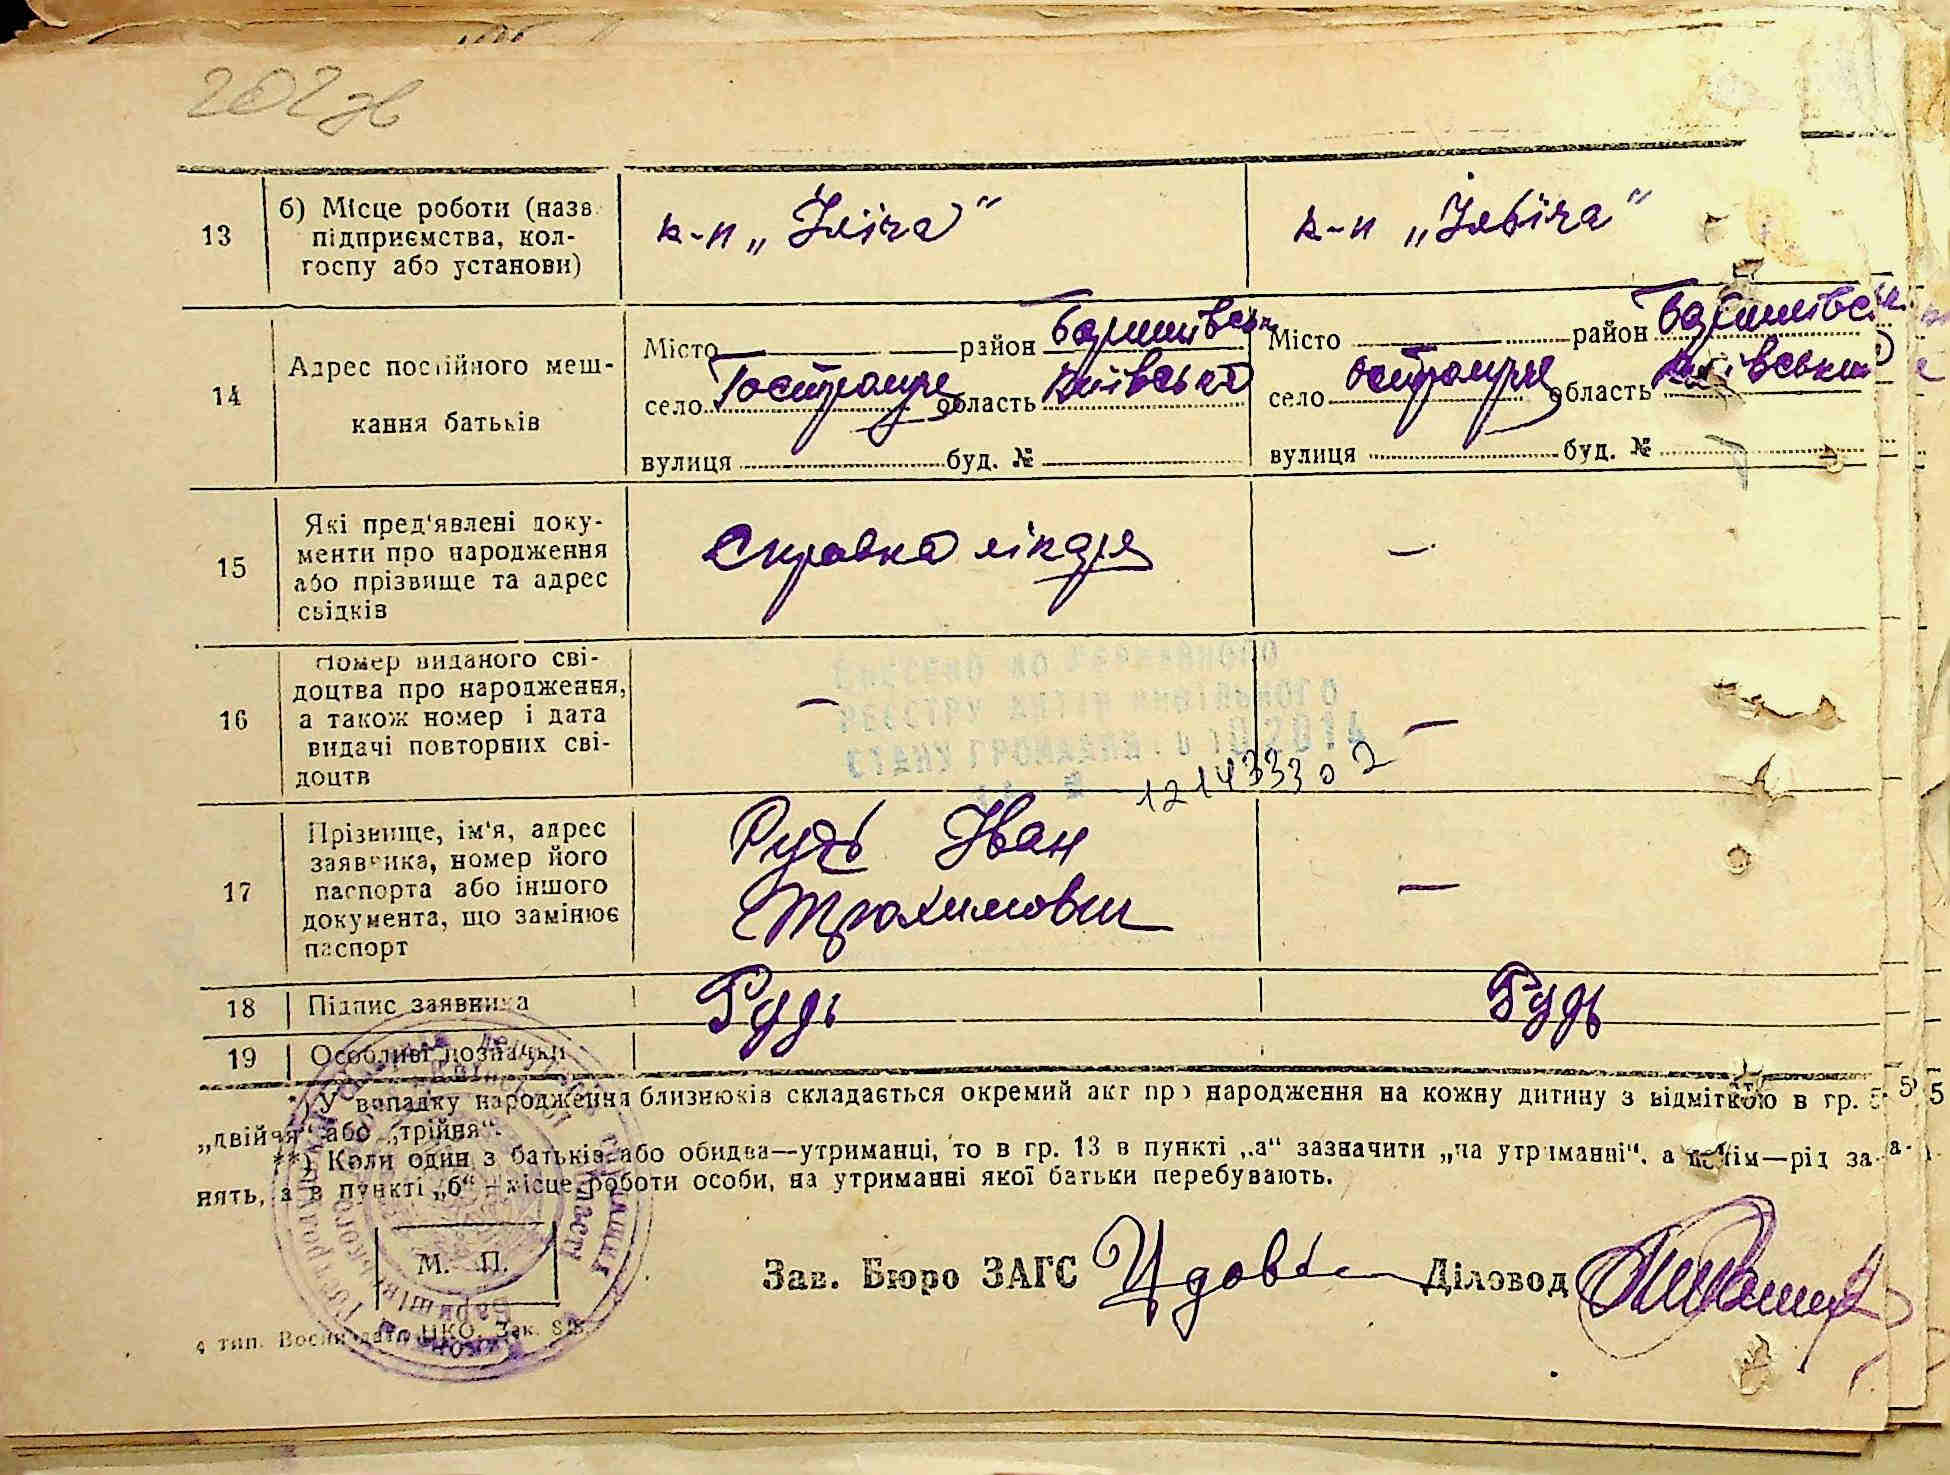 202 зв
13
б) Місце роботи (назв
підприємства, кол-
госпу або установи)
к-п „Ілліча“
к-п „Ілліча“
14
Адрес постійного меш-
кання батьків
Місто район Баришівськ
село Гостролуче область Київська
вулиця буд. №
Місто район Баришівськ
село Остролуче область Київська
вулиця буд. №
15
Які пред'явлені доку-
менти про народження
або прізвище та адрес
свідків
Справка лікаря
—
16
Номер виданого сві-
доцтва про народження,
а також номер і дата
видачі повторних сві-
доцтв
—
—
ВНЕСЕНИЙ ДО ДЕРЖАВНОГО
РЕЄСТРУ АКТІВ ЦИВІЛЬНОГО
СТАНУ ГРОМАДЯН 10 2014
№ 12143330 2
17
Прізвище, ім'я, адрес
заявника, номер його
паспорта або іншого
документа, що замінює
паспорт
Рудь Іван
Трохимович
—
18
Підпис заявника
Рудь
Рудь
19
Особливі позначки
*) У випадку народження близнюків складається окремий акт про народження на кожну дитину з відміткою в гр. 5
„двійня“ або „трійня“.
**) Коли один з батьків або обидва—утриманці, то в гр. 13 в пункті „а“ зазначити „на утриманні“, а потім—рід за-
нять, а в пункті „б“ – місце роботи особи, на утриманні якої батьки перебувають.
М. П.
Зав. Бюро ЗАГС
Діловод
4 тип. Воениздата НКО. Зак.